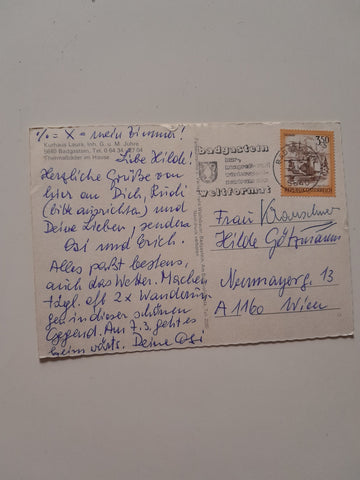 % = X = mein Zimmer!
Kurhaus Laura, Inh. G. u. M. Jobre
5640 Badgastein, Tel. 0 64 34 / 27 04
Thermalbäder im Hause
Liebe Hilde!
Herzliche Grüße von
hier an Dich, Rudi
(bitte ausrichten) und
Deine Lieben, senden
Osi und Erich.
Alles paßt bestens,
auch das Wetter. Machen
tägl. oft 2x Wanderun-
gen in dieser schönen
Gegend. Am 7.3. geht es
heimwärts. Deine Osi
badgastein
weltformat
3.50
REPUBLIK ÖSTERREICH
Frau
Hilde Götzmann
Neumayerg. 13
A 1160 Wien